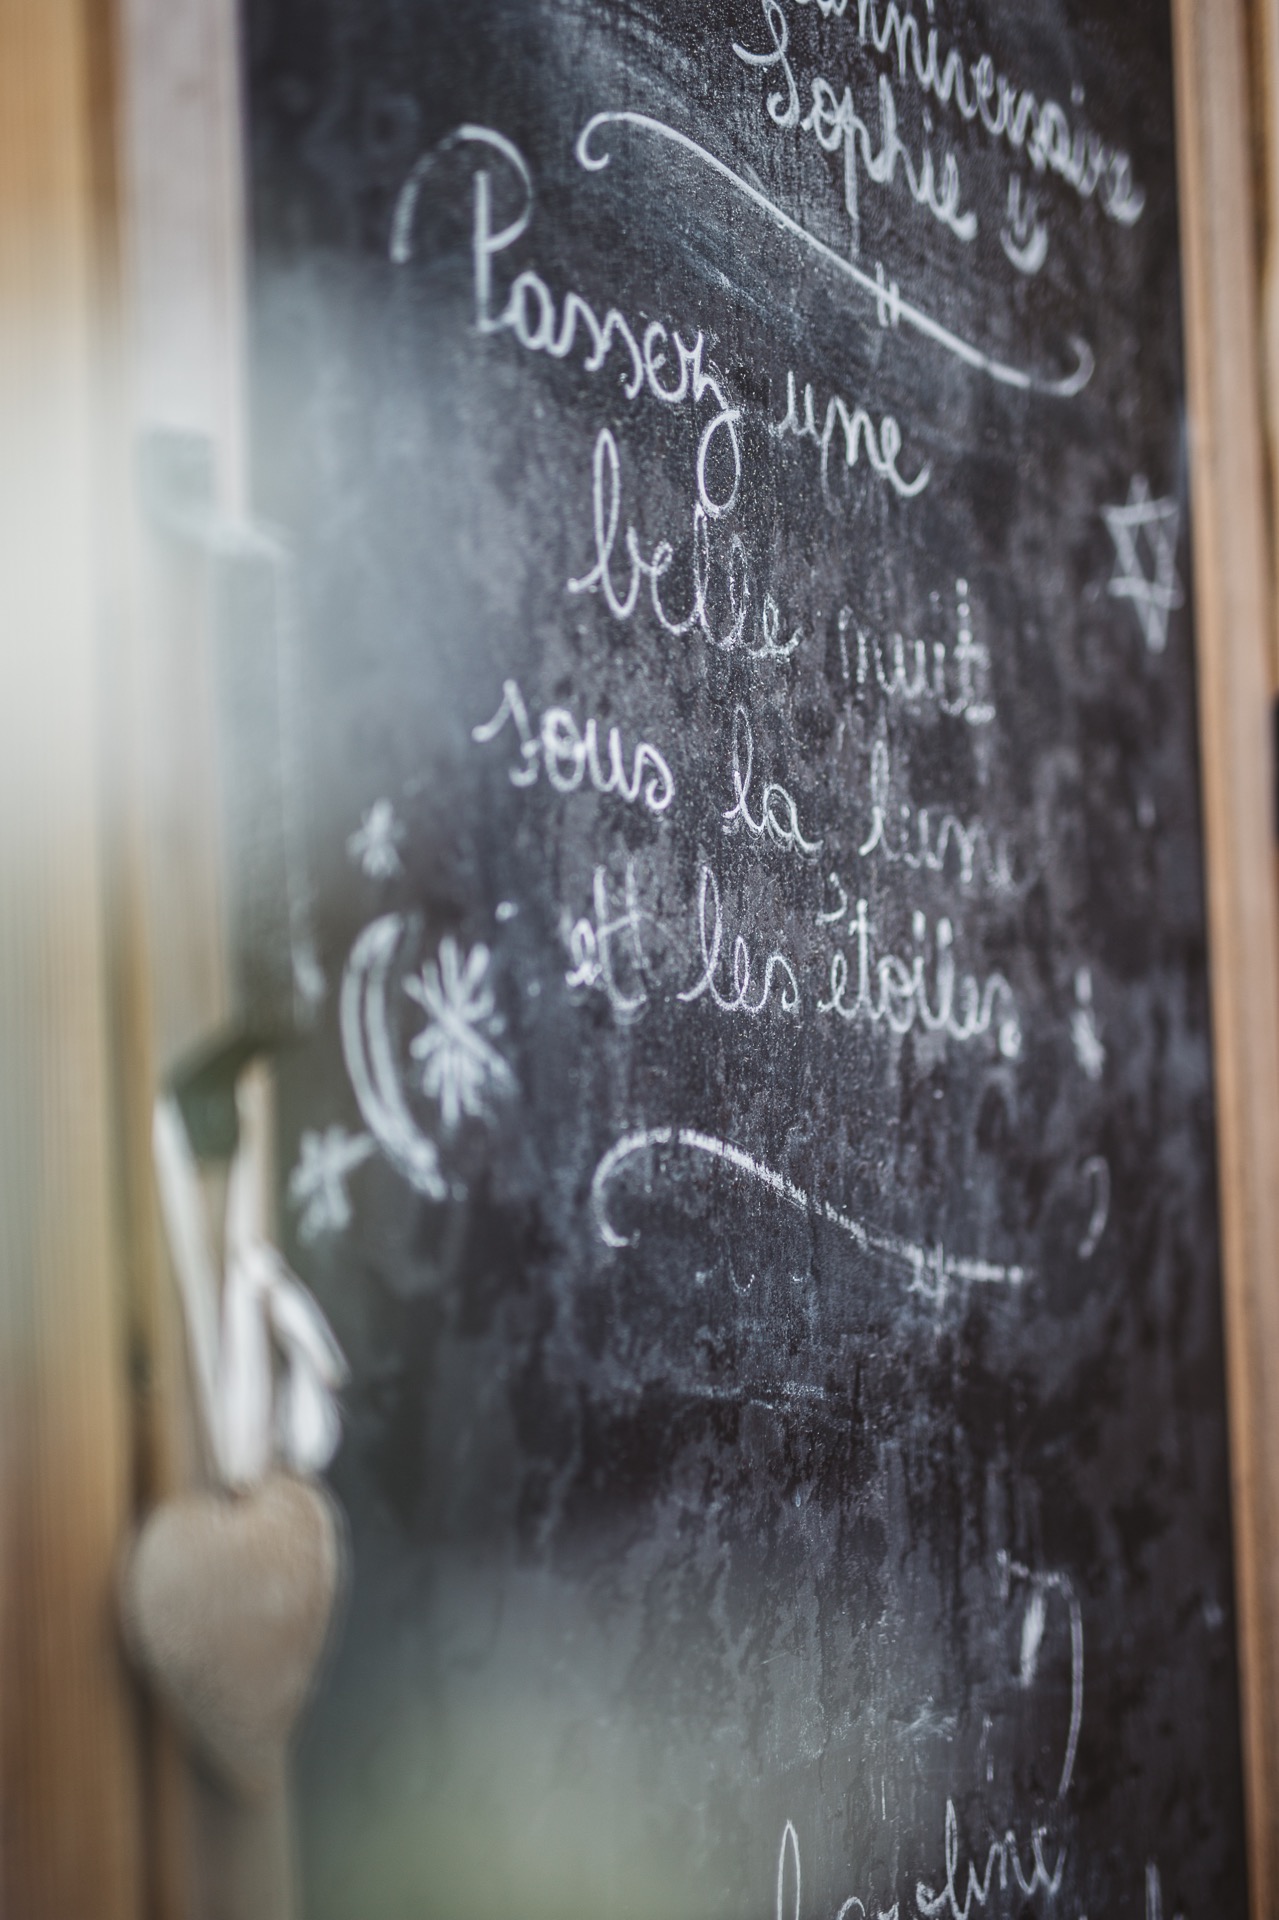 anniversaire
Sophie
Passez une
belle nuit
sous la lune
et les étoiles